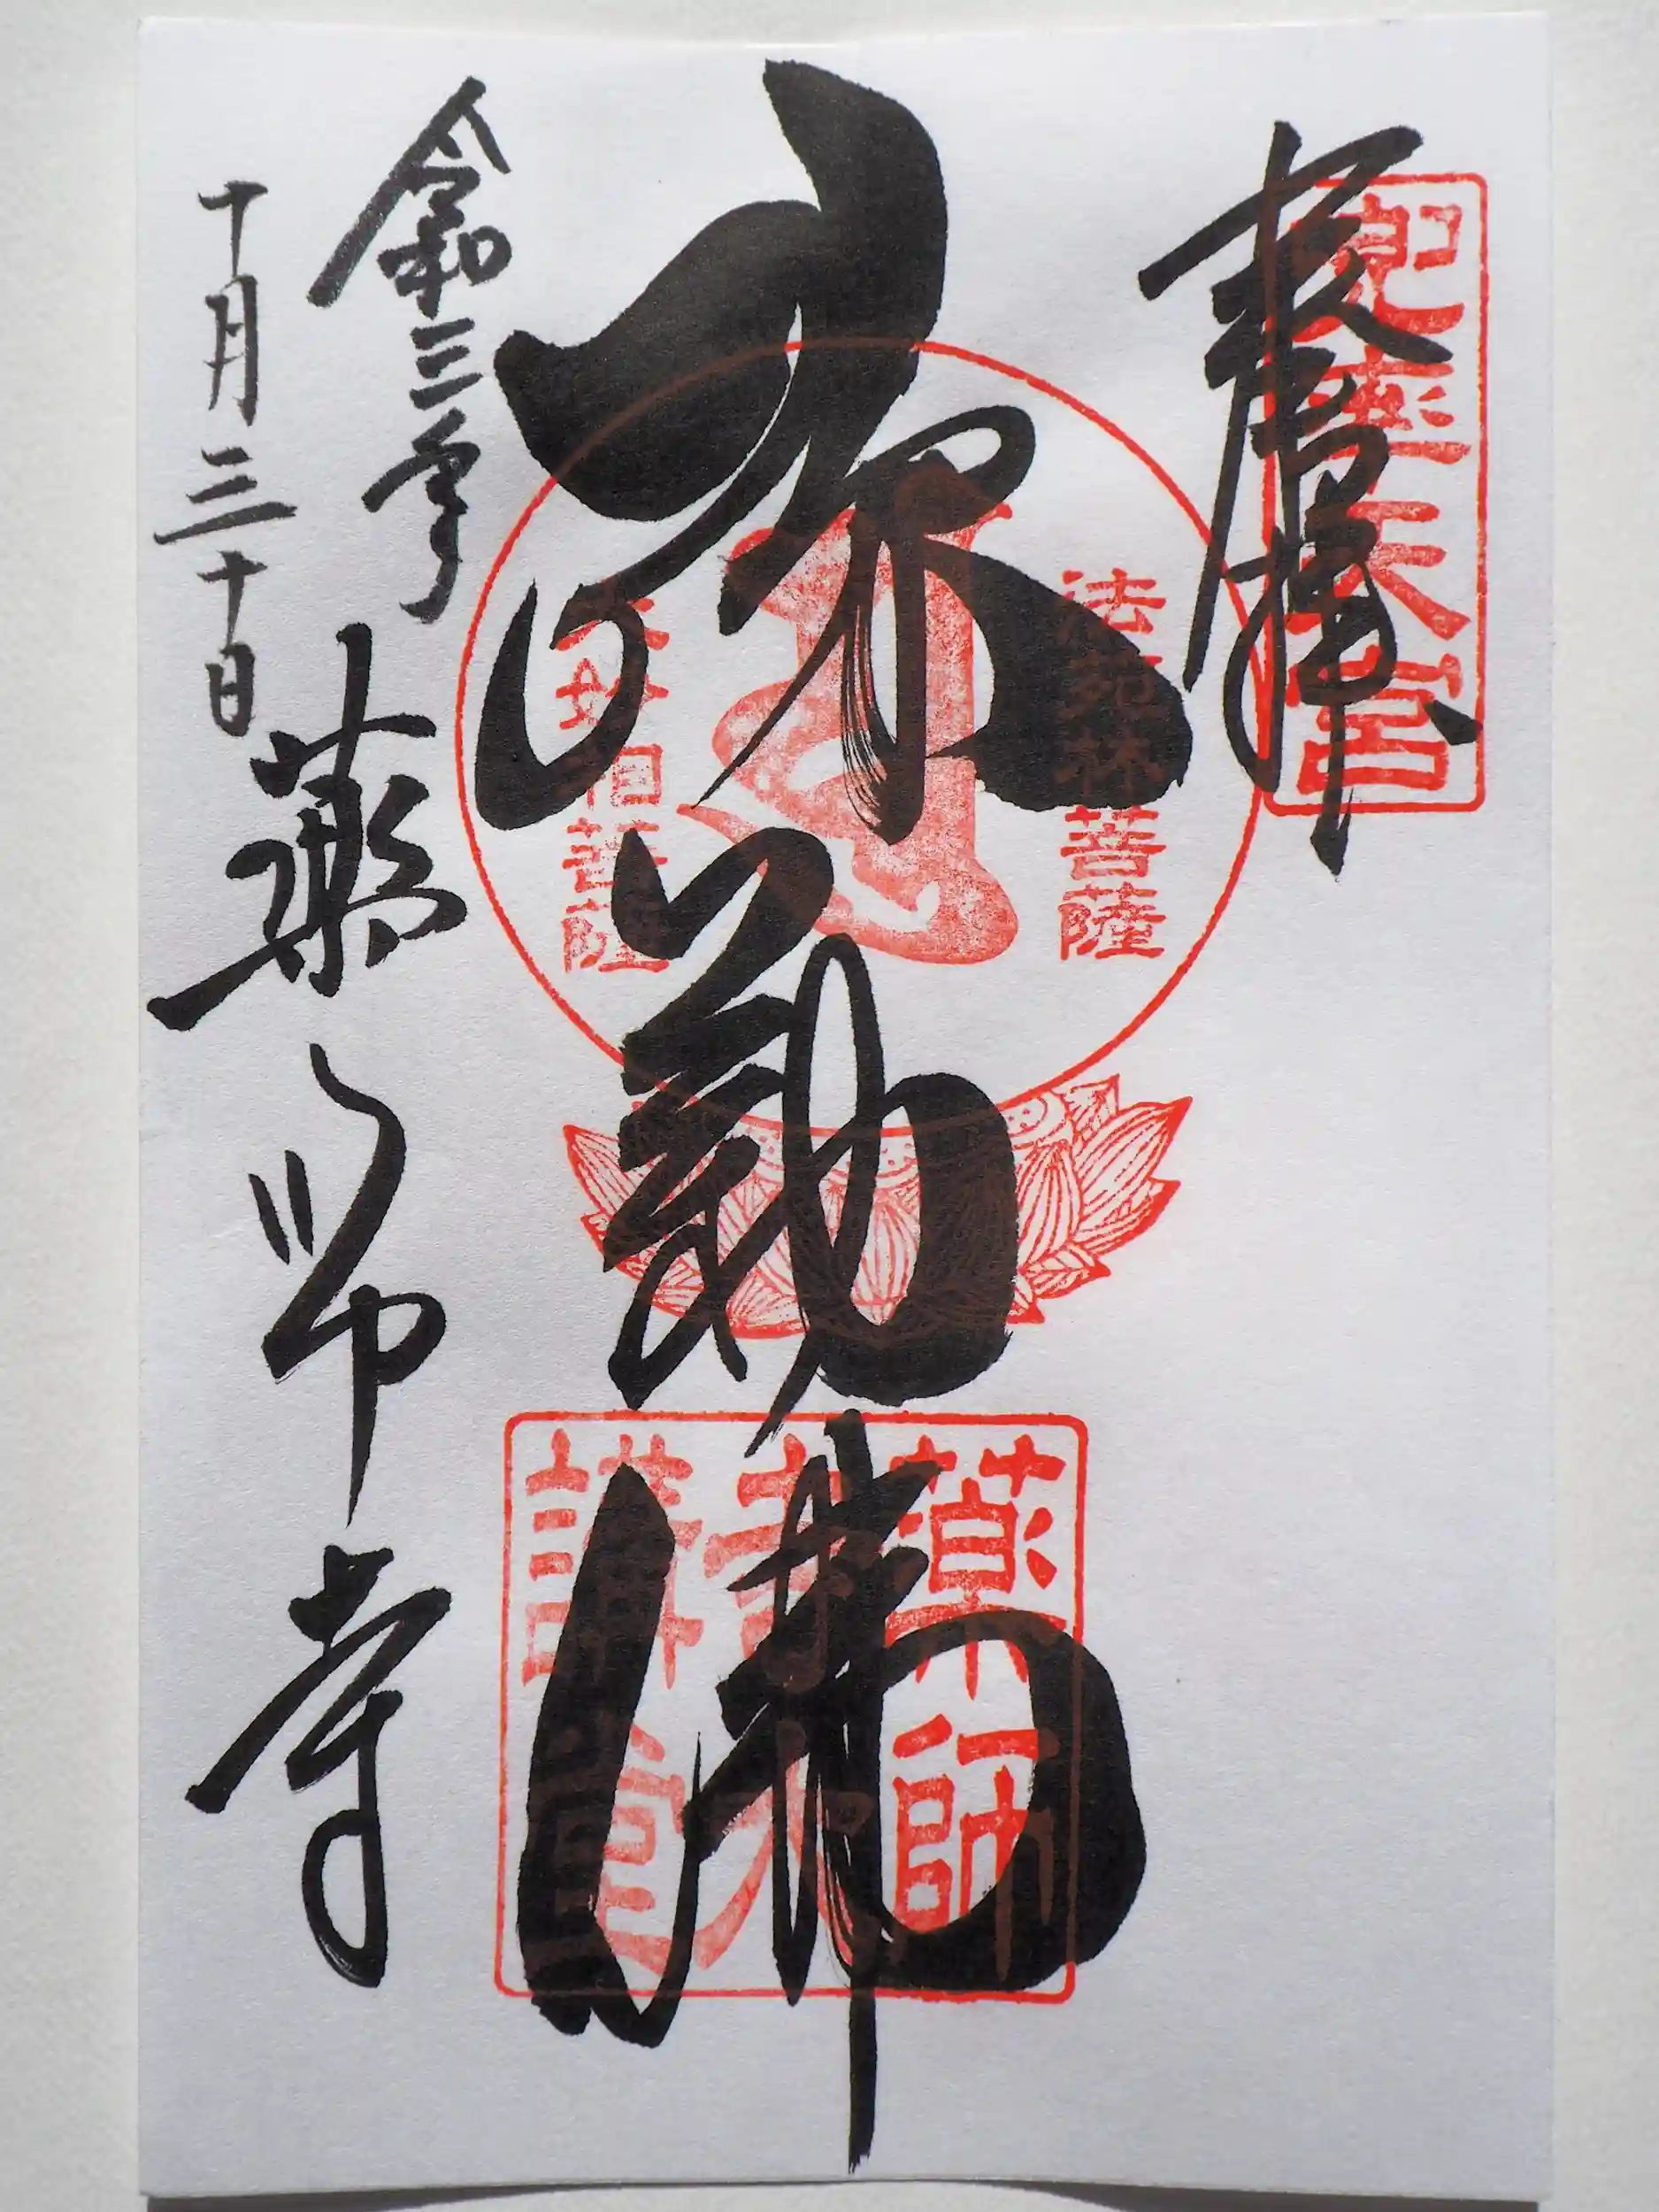 奉拝
兜率天宮
弥勒佛
法苑林菩薩
大妙相菩薩
薬師
講堂
令和三年
十月三十日
薬師寺